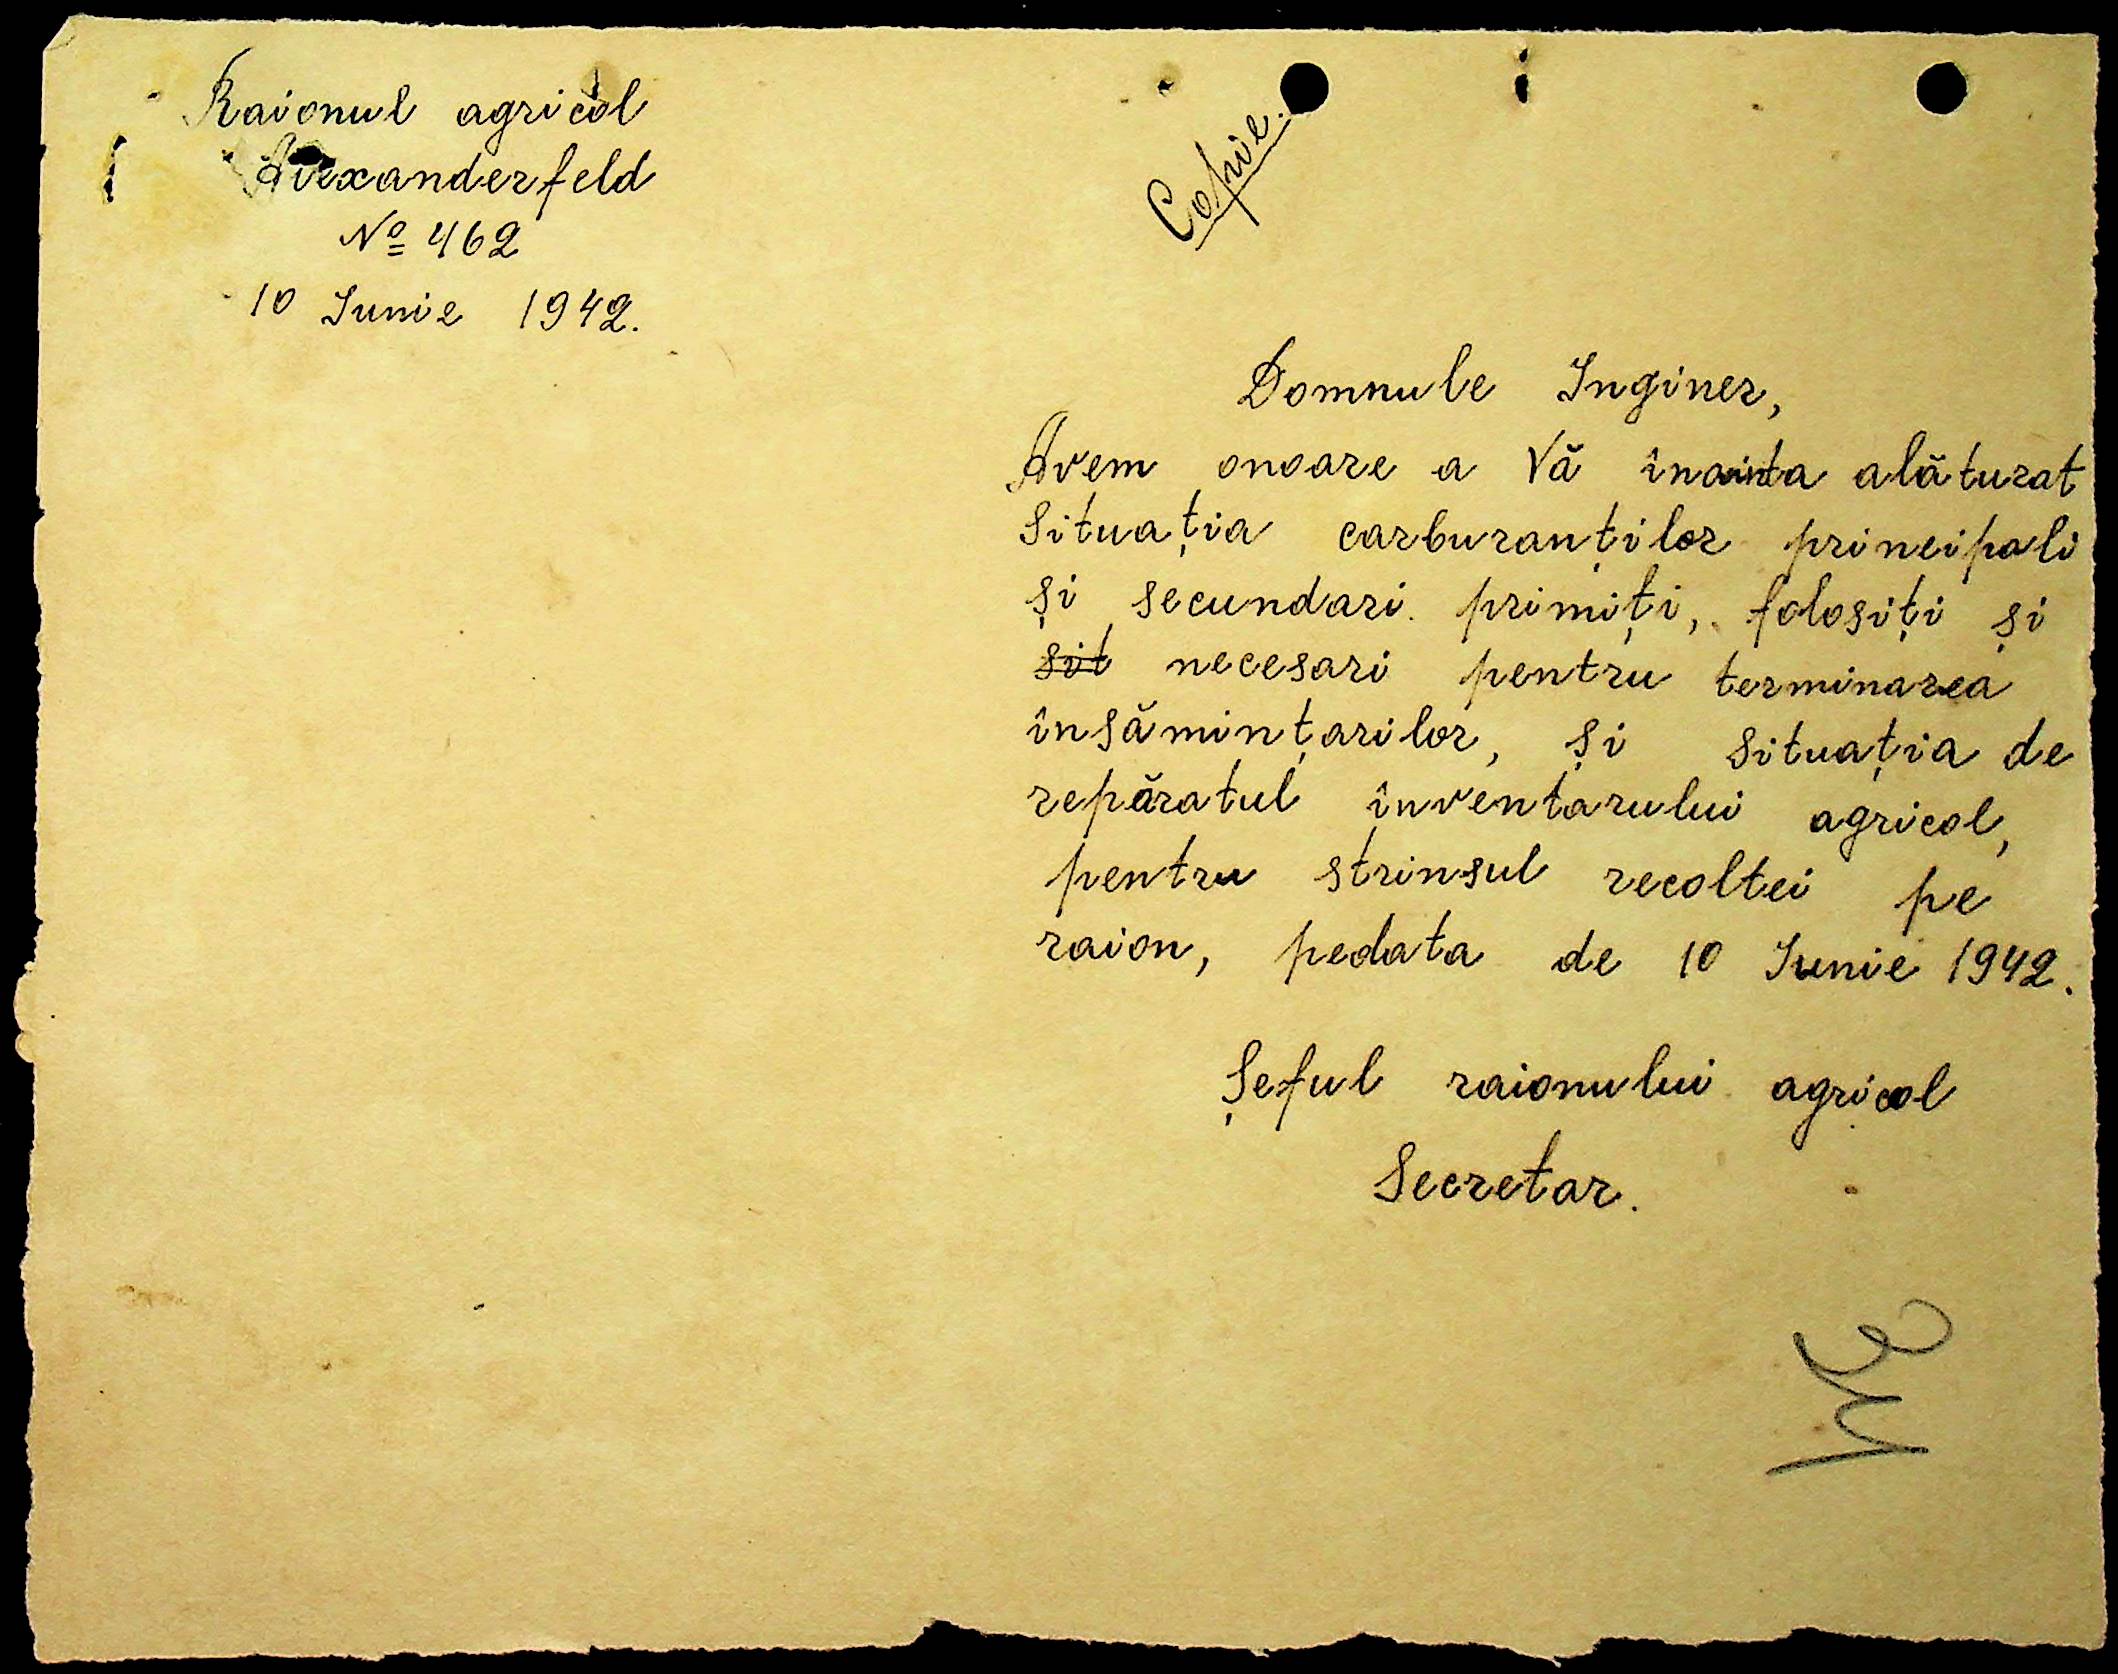 Raionul agricol
Alexanderfeld
№ 462
10 Iunie 1942.
Copie.
Domnule Inginer,
Avem onoare a Vă înainta alăturat
Situația carburanților principali
și secundari primiți, folosiți și
sit necesari pentru terminarea
însămințarilor, și situația de
repăratul inventarului agricol,
pentru strinsul recoltei pe
raion, pedata de 10 Iunie 1942.
Șeful raionului agricol
Secretar.